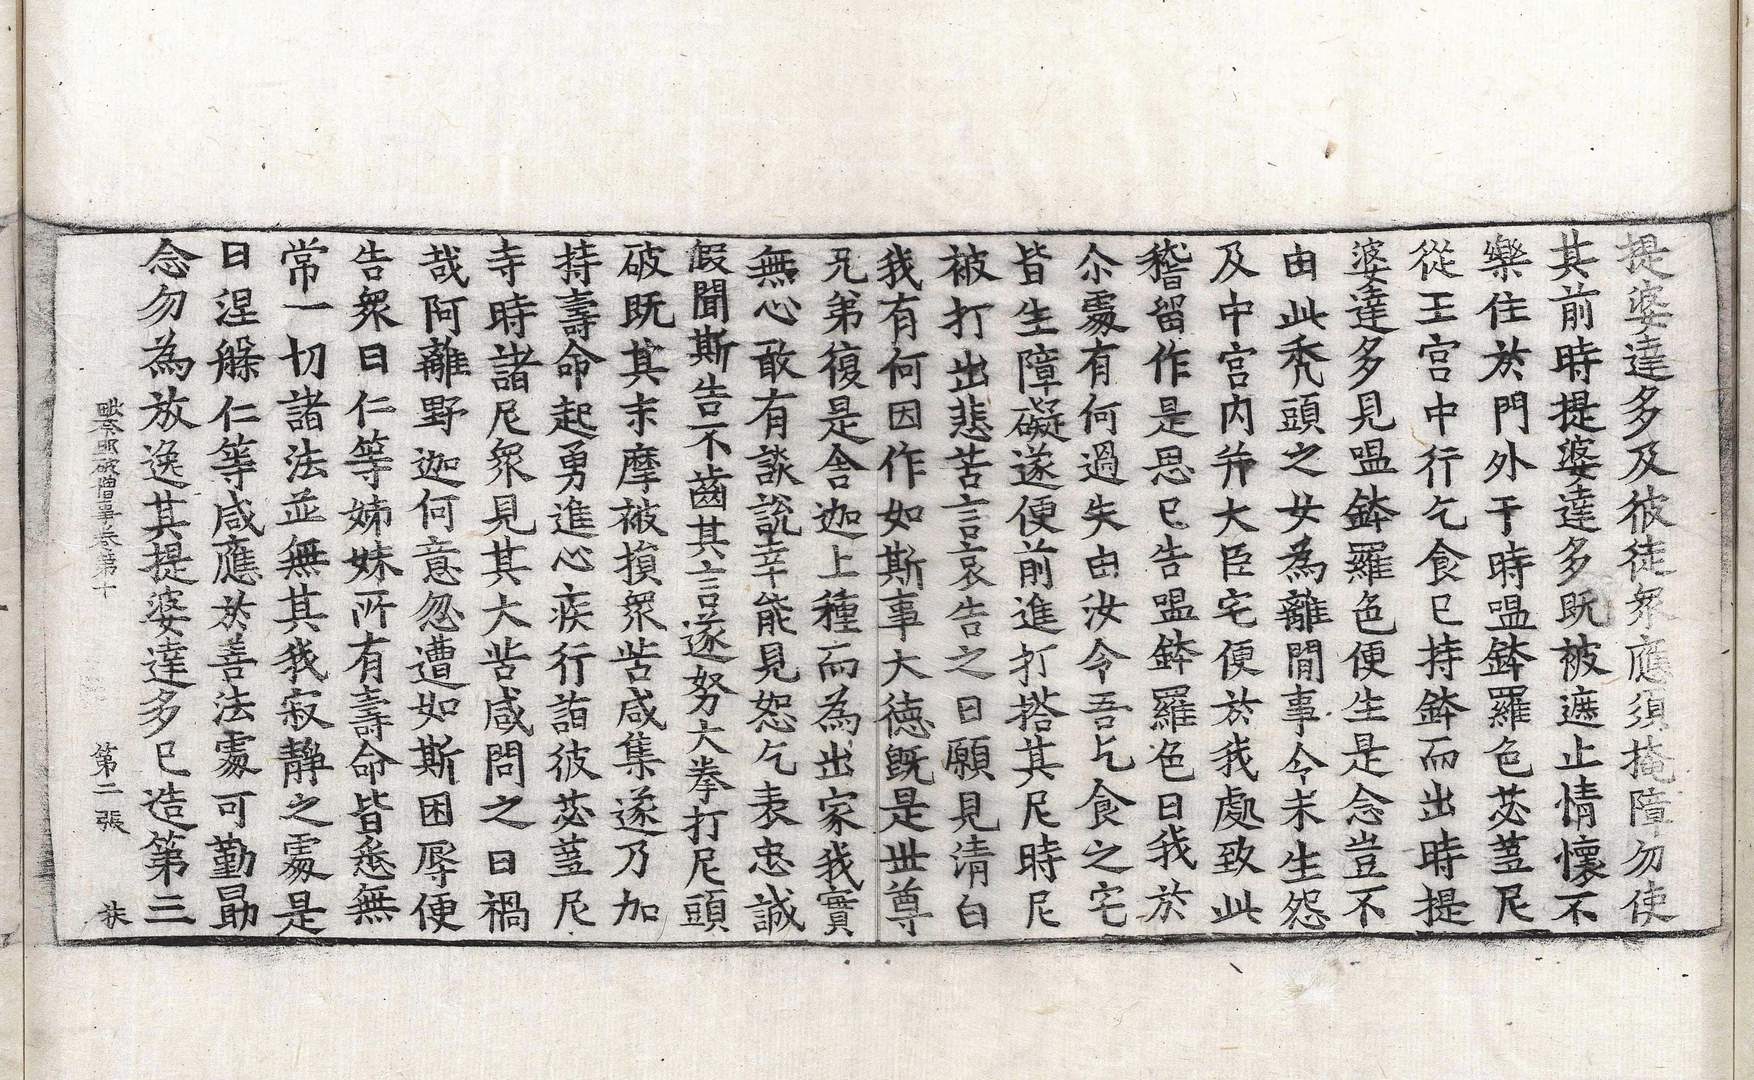 提婆達多及彼徒衆應須掩障勿使
其前時提婆達多旣被遮止情懷不
樂住於門外于時嗢鉢羅色苾蒭尼
從王宮中行乞食已持鉢而出時提
婆達多見嗢鉢羅色便生是念豈不
由此禿頭之女為離間事令未生怨
及中宮內幷大臣宅便於我處致此
稽留作是思已告嗢鉢羅色曰我於
尒處有何過失由汝令吾乞食之宅
皆生障礙遂便前進打搭其尼時尼
被打出悲苦言哀告之曰願見清白
我有何因作如斯事大德旣是世尊
兄弟復是舍迦上種而為出家我實
無心敢有談說幸能見恕乞表忠誠
假聞斯告不齒其言遂努大拳打尼頭
破旣其末摩被損衆苦咸集遂乃加
持壽命起勇進心疾行詣彼苾蒭尼
寺時諸尼衆見其大苦咸問之曰禍
哉阿離野迦何意忽遭如斯困辱便
告衆曰仁等姊妹所有壽命皆悉無
常一切諸法並無其我寂靜之處是
曰涅槃仁等咸應於善法處可勤勗
念勿為放逸其提婆達多已造第三
毗奈耶破僧事卷第十 第二張 扶